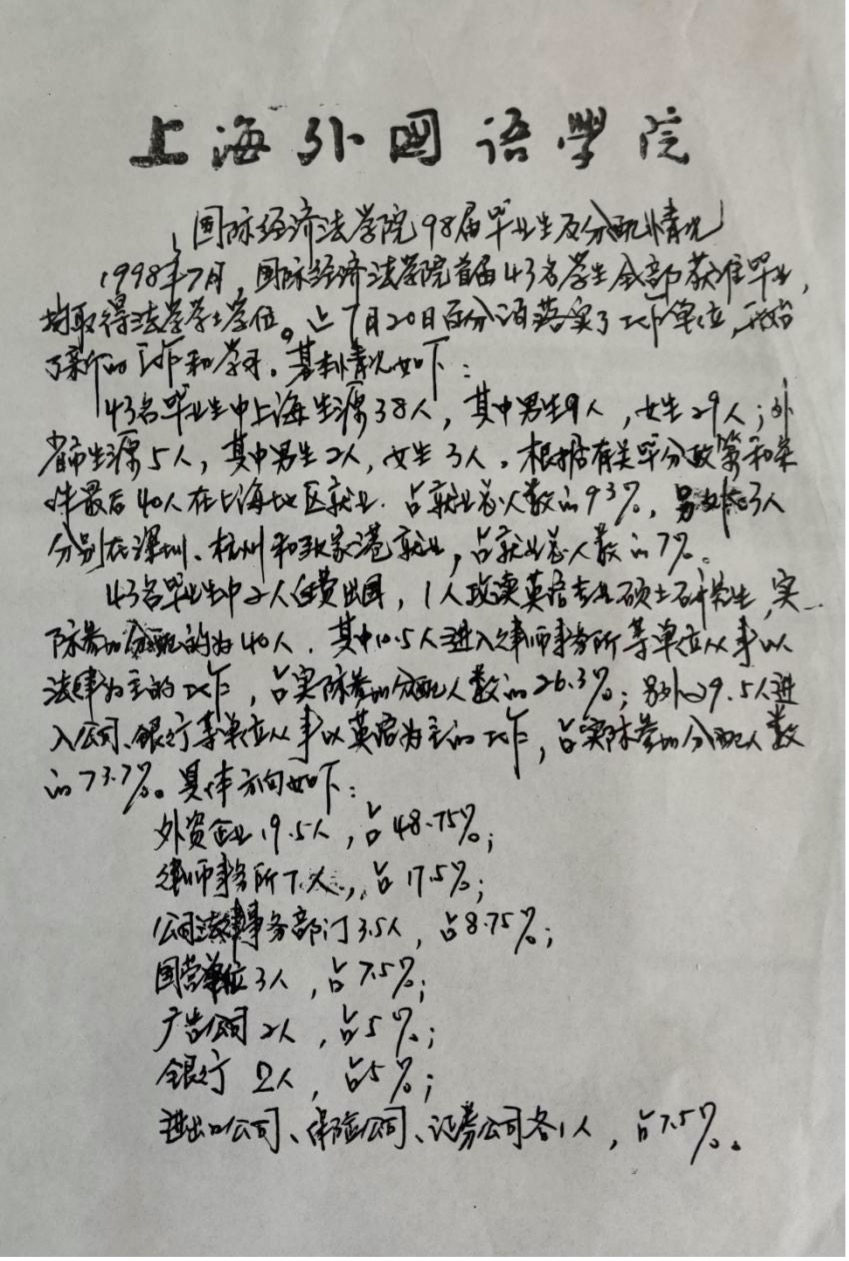 上海外国语学院
国际经济法学院98届毕业生及分配情况
1998年7月,国际经济法学院首届43名学生全部获准毕业,
均取得法学学士学位。至7月20日百分之百落实了工作单位,开始
了新的工作和学习。基本情况如下:
43名毕业生中上海生源38人,其中男生9人,女生29人;外
省市生源5人,其中男生2人,女生3人。根据有关毕分政策和条
件最后40人在上海地区就业.占就业总人数的93%,另外3人
分别在深圳、杭州和张家港就业,占就业总人数的7%。
43名毕业生中2人自费出国,1人攻读英语专业硕士研究生,实
际参加分配的为40人.其中10.5人进入律师事务所等单位从事以
法律为主的工作,占实际参加分配人数的26.3%;另外29.5人进
入公司、银行等单位从事以英语为主的工作,占实际参加分配人数
的73.7%。具体方向如下:
外资企业19.5人,占48.75%;
律师事务所7人,占17.5%;
公司法律事务部门3.5人,占8.75%;
国营单位3人,占7.5%;
广告公司2人,占5%;
银行2人,占5%;
进出口公司、保险公司、证券公司各1人,占7.5%。